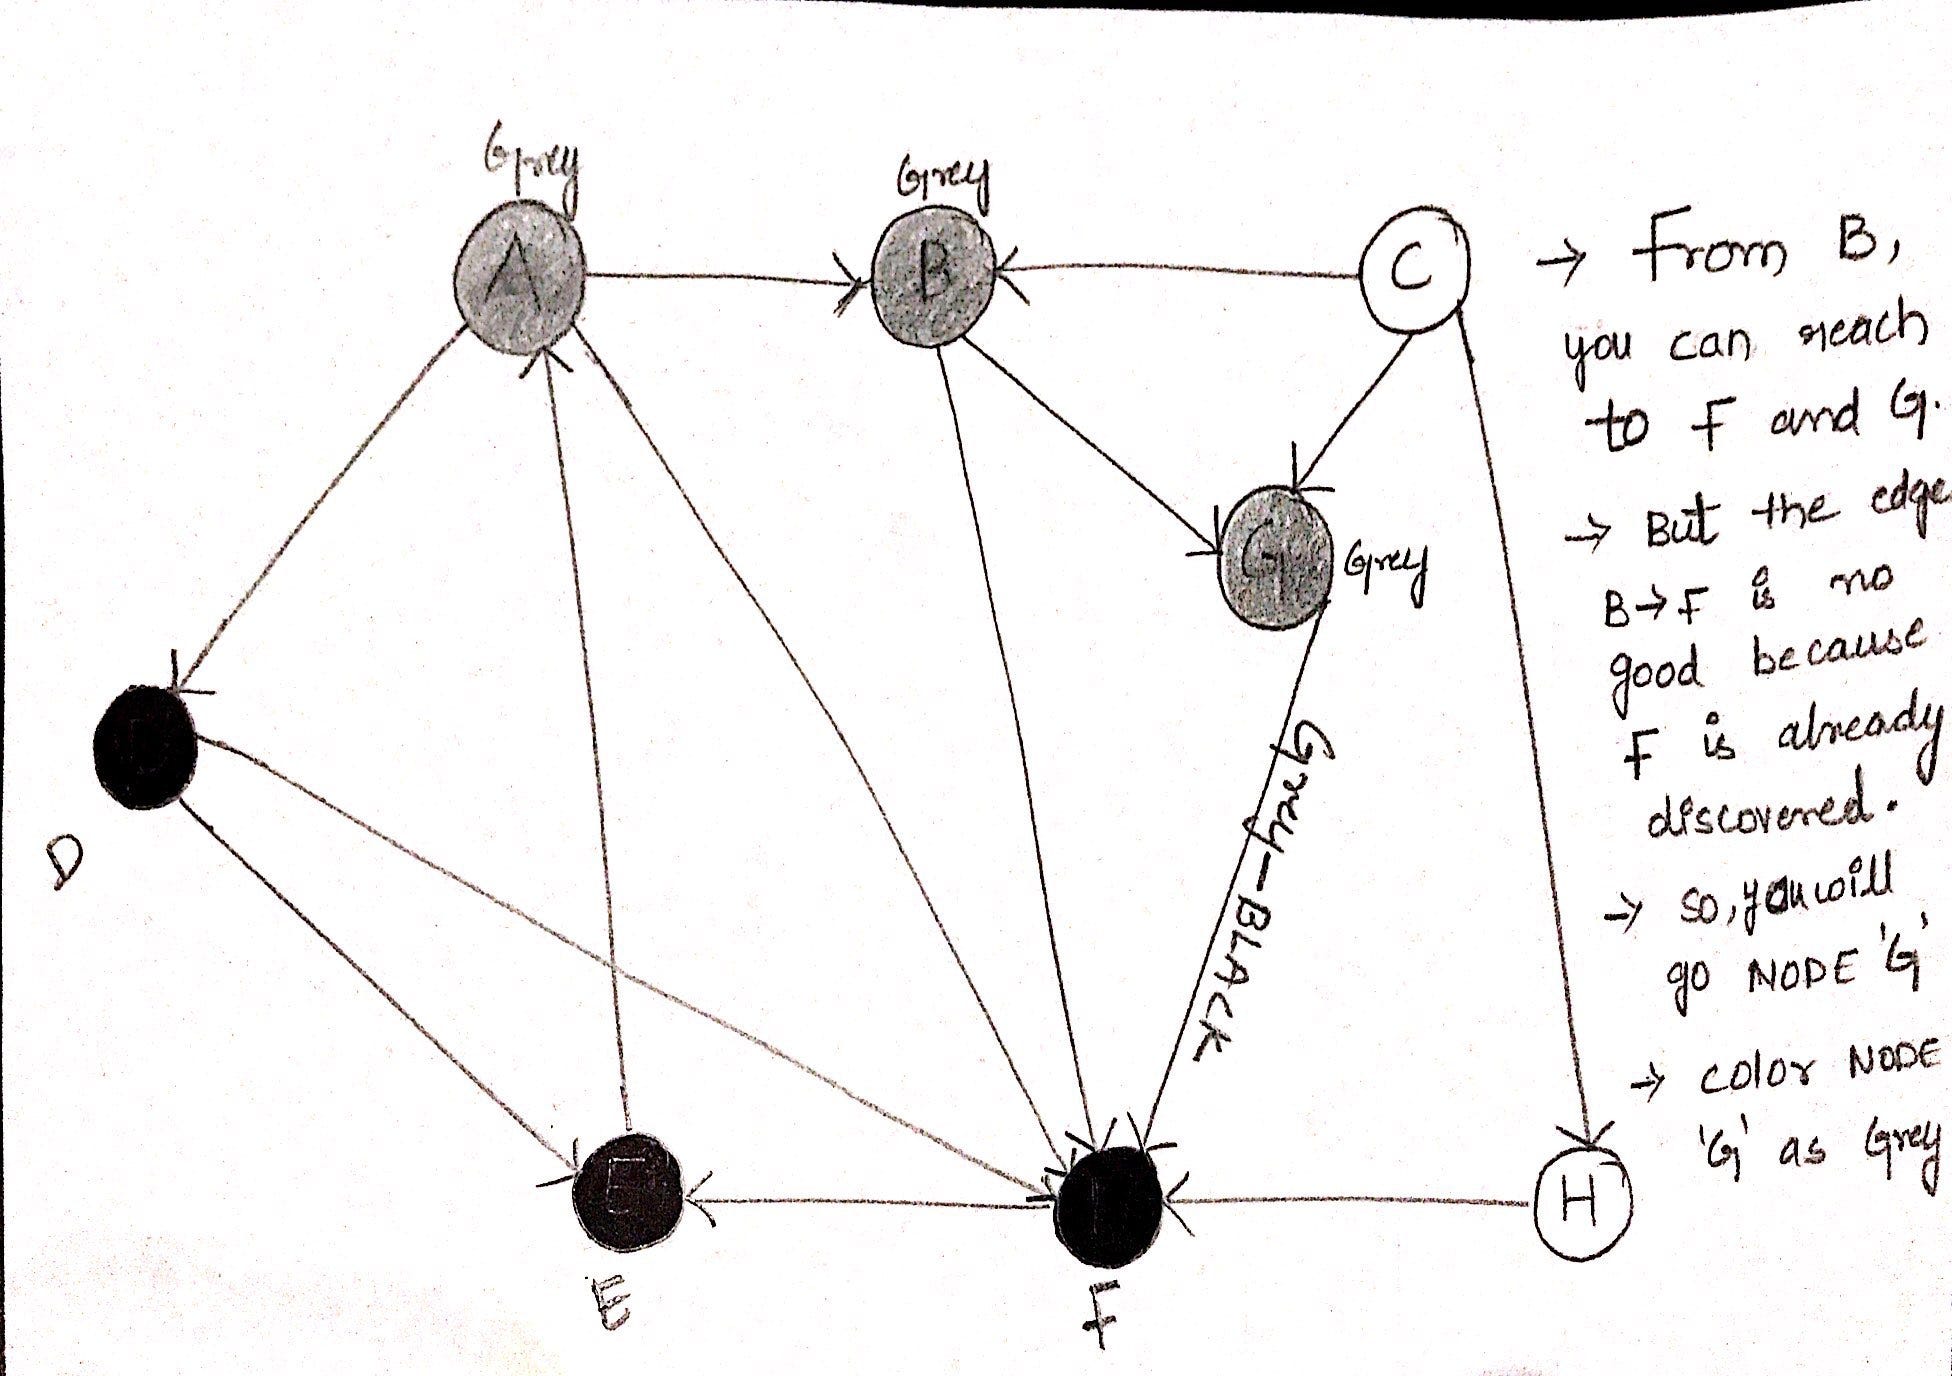 Grey
Grey
A
B
C
G
Grey
D
D
E
E
F
H
Grey-BLACK
→ From B,
you can reach
to F and G.
→ But the edge
B→F is no
good because
F is already
discovered.
→ so, you will
go NODE 'G'
→ color NODE
'G' as Grey